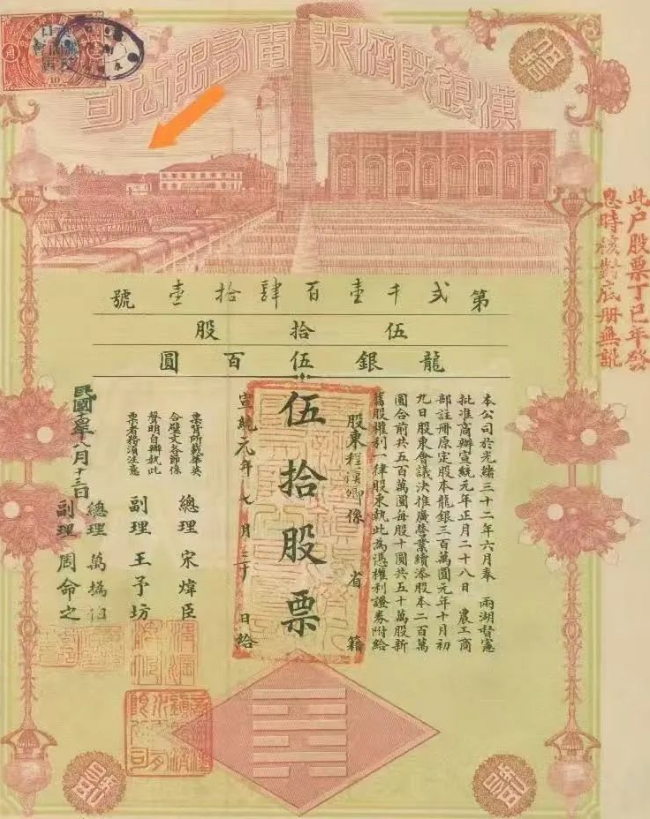 漢鎮既濟水電有限公司
第弍千壹百肆拾壹號
伍拾股
龍銀伍百圓
此户股票丁巳年發
息時核對底册無訛
本公司於光緒三十二年六月奉 兩湖督憲
批准商辦宣統元年正月二十八日 農工商
部註冊原定股本龍銀三百萬圓元年十月初
九日股東會議決推廣營業續添股本二百萬
圓合前共五百萬圓每股十圓共五十萬股新
舊股權利一律股東執此為憑權利證券附給
股東程 卿像 省 籍
伍拾股票
宣統元年七月 十日給
票背所載華英
合璧文各節係
聲明自辦執此
票者務須注意
總理 宋煒臣
副理 王予坊
總理 萬撝伯
副理 周命之
民國 年八月十三日